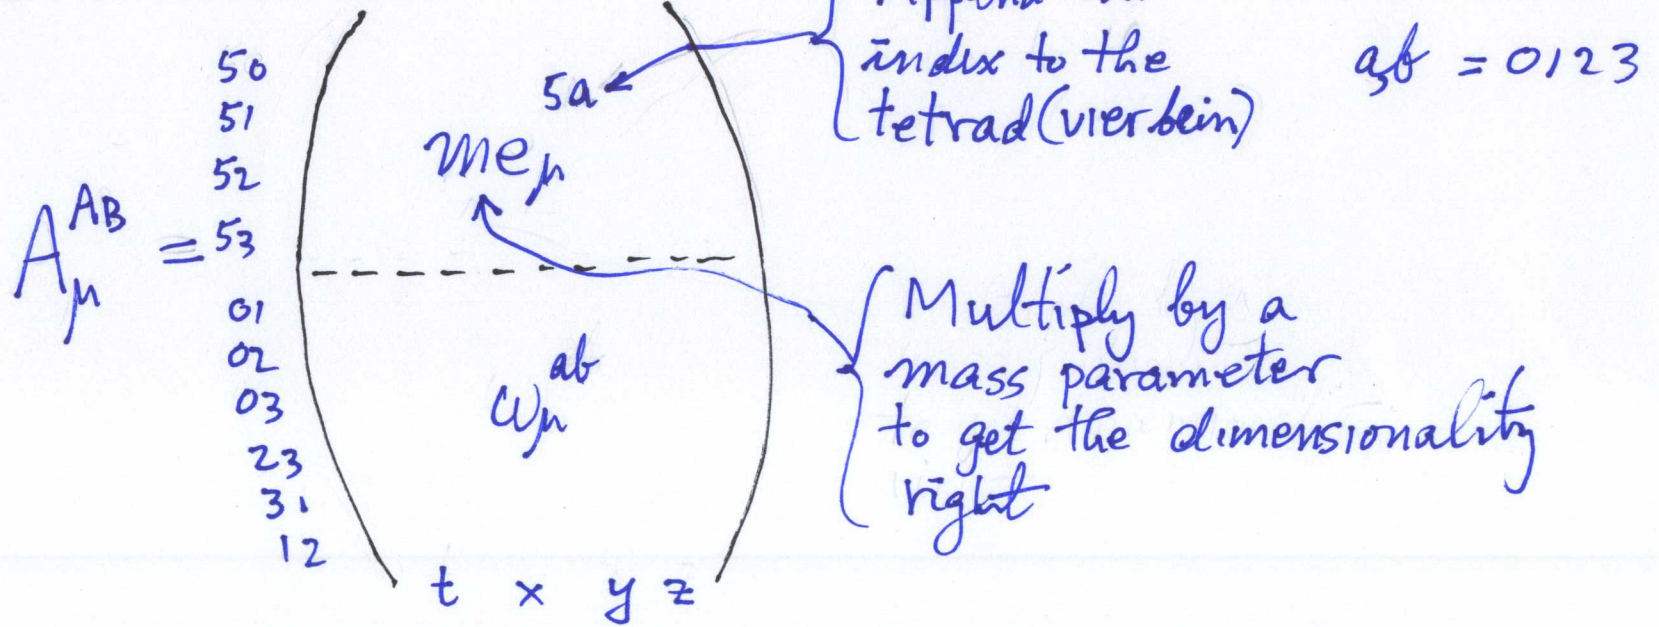 Append
index to the
tetrad (vierbein)
a,b = 0123
A_μ^{AB} =
50
51
52
53
01
02
03
23
31
12
me_μ^{5a}
ω_μ^{ab}
t x y z
Multiply by a
mass parameter
to get the dimensionality
right